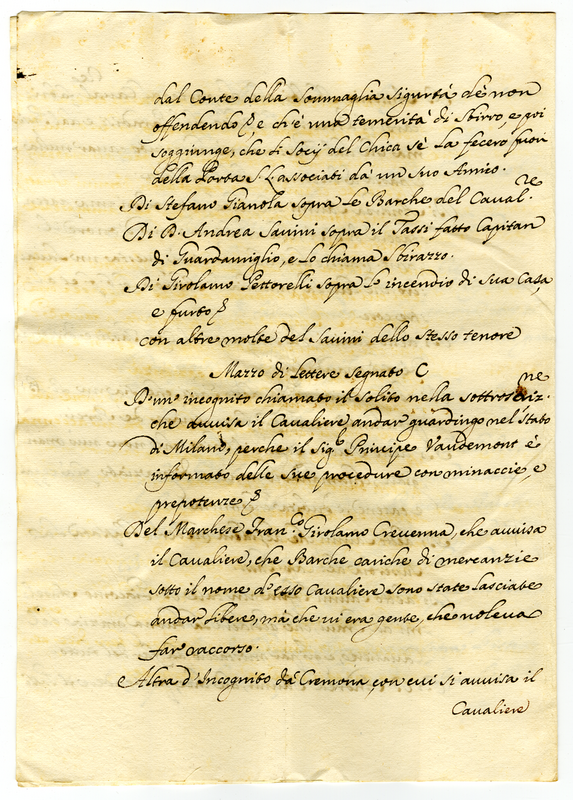 dal Conte della Sommaglia sigurtà de non
offendendo &, e ch'è una temerità di sbirro, e qui
soggiunge, che li Socij del Chica sè la fecero fuori
della Porta S. associati da un suo Amico.
Di Stefano Gianola sopra le Barche del Caval.re
Di D. Andrea Savini sopra il Tassi fatto Capitan
di Guardamiglio, e lo chiama Sbirazzo.
Di Girolamo Pettorelli sopra lo incendio di sua Casa,
e furto &
con altre molte del Savini dello stesso tenore
Mazzo di lettere segnato C
D'un' incognito chiamato il solito nella sottroscriz.ne
che avvisa il Cavaliere andar guardingo nel Stato
di Milano, perche il Sig.r Principe Vaudemont è
informato delle sue procedure con minaccie, e
prepotenze &
Del Marchese Fran.co Girolamo Crevenna, che avvisa
il Cavaliere, che Barche cariche di mercanzie
sotto il nome d'esso Cavaliere sono state lasciate
andar libere, mà che vi era gente, che voleva
far raccorso.
Altra d'Incognito dà Cremona con cui si avvisa il
Cavaliere